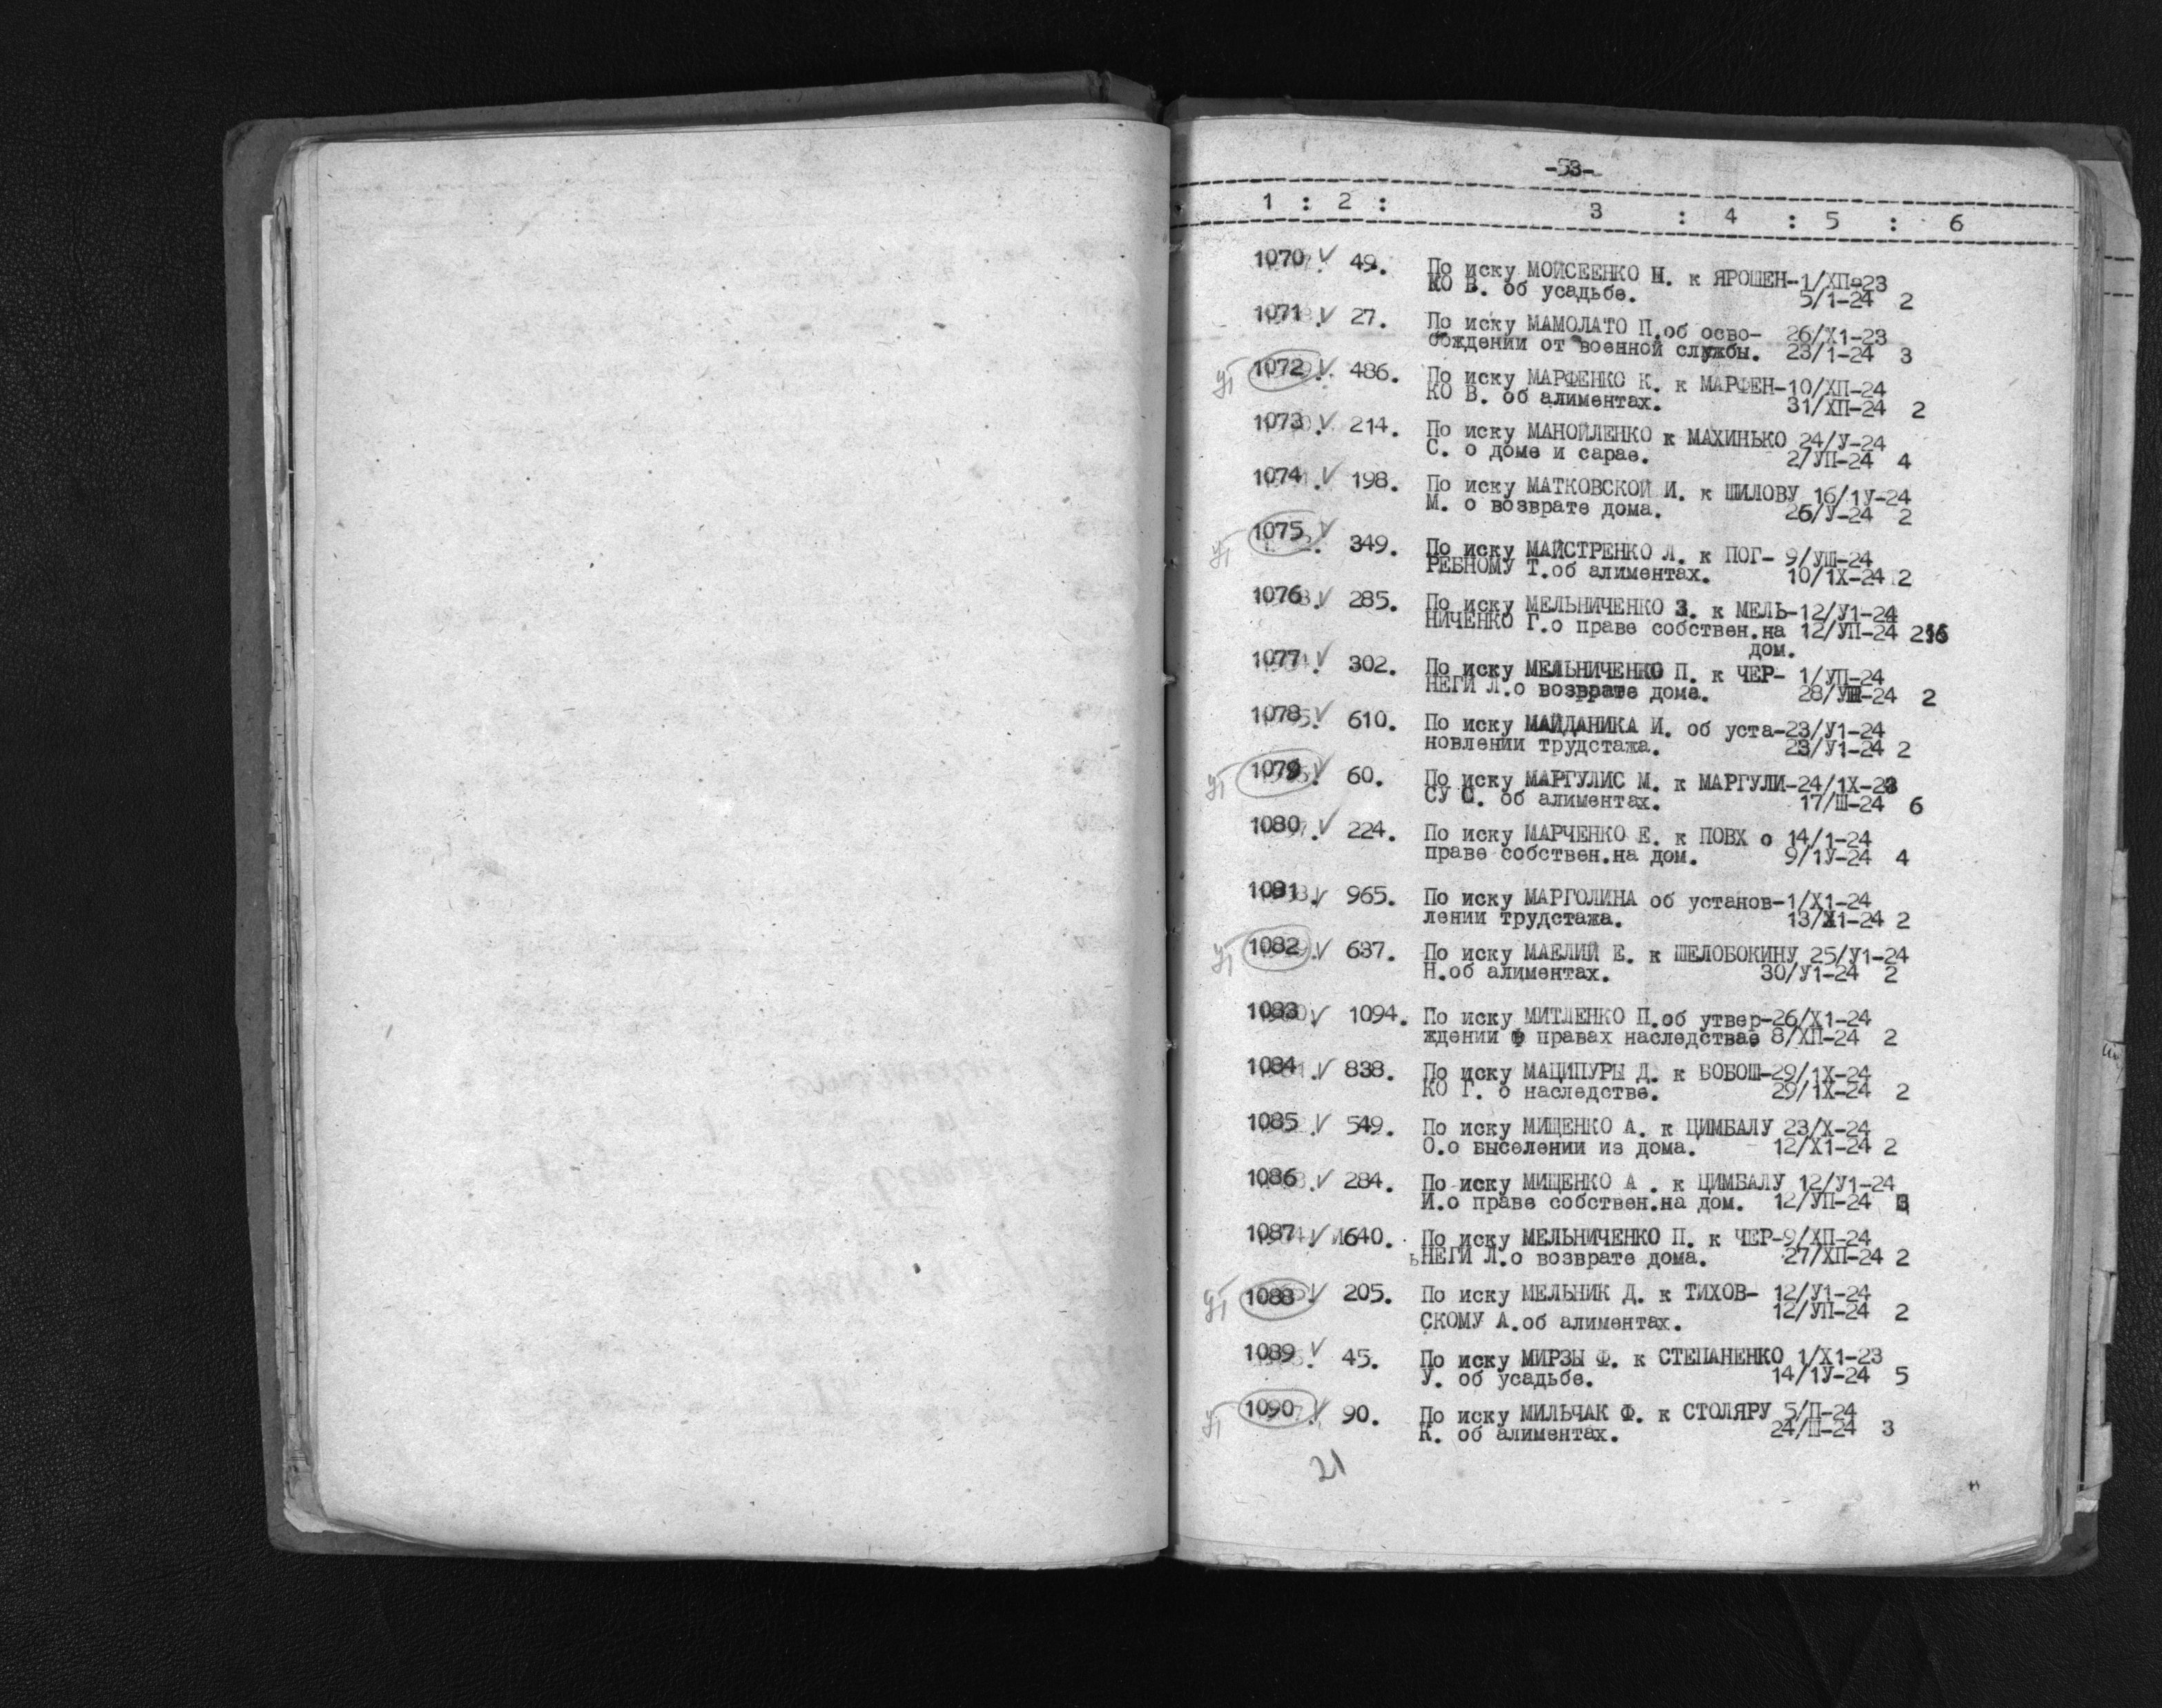 -53-
1 : 2 : 3 : 4 : 5 : 6
1070 V 49. По иску МОЙСЕЕНКО Н. к ЯРОШЕН-1/ХП-23
КО В. об усадьбе. 5/1-24 2
1071 V 27. По иску МАМОЛАТО П.об осво- 26/Х1-23
бождении от военной службы. 23/1-24 3
1072 V 486. По иску МАРФЕНКО К. к МАРФЕН-10/ХП-24
КО В. об алиментах. 31/ХП-24 2
1073 V 214. По иску МАНОЙЛЕНКО к МАХИНЬКО 24/У-24
С. о доме и сарае. 2/УП-24 4
1074 V 198. По иску МАТКОВСКОЙ И. к ШИЛОВУ 16/1У-24
М. о возврате дома. 26/У-24 2
1075 V 349. По иску МАЙСТРЕНКО Л. к ПОГ- 9/УШ-24
РЕБНОМУ Т.об алиментах. 10/1Х-24 2
1076 V 285. По иску МЕЛЬНИЧЕНКО З. к МЕЛЬ-12/У1-24
НИЧЕНКО Г.о праве собствен.на 12/УП-24
дом.
1077 V 302. По иску МЕЛЬНИЧЕНКО П. к ЧЕР- 1/УП-24
НЕГИ Л.о возврате дома. 28/УШ-24 2
1078 V 610. По иску МАЙДАНИКА И. об уста-23/У1-24
новлении трудстажа. 23/У1-24 2
1079 V 60. По иску МАРГУЛИС М. к МАРГУЛИ-24/1Х-23
СУ С. об алиментах. 17/Ш-24 6
1080 V 224. По иску МАРЧЕНКО Е. к ПОВХ о 14/1-24
праве собствен.на дом. 9/1У-24 4
1081 V 965. По иску МАРГОЛИНА об установ-1/Х1-24
лении трудстажа. 13/Х1-24 2
1082 V 637. По иску МАЕЛИЙ Е. к ШЕЛОБОКИНУ 25/У1-24
Н.об алиментах. 30/У1-24 2
1083 V 1094. По иску МИТЛЕНКО П.об утвер-26/Х1-24
ждении правах наследства 8/ХП-24 2
1084 V 838. По иску МАЦИПУРЫ Д. к БОБОШ-29/1Х-24
КО Г. о наследстве. 29/1Х-24 2
1085 V 549. По иску МИЩЕНКО А. к ЦИМБАЛУ 23/Х-24
О.о выселении из дома. 12/Х1-24 2
1086 V 284. По иску МИЩЕНКО А . к ЦИМБАЛУ 12/У1-24
И.о праве собствен.на дом. 12/УП-24
1087 V 1640. По иску МЕЛЬНИЧЕНКО П. к ЧЕР-9/ХП-24
НЕГИ Л.о возврате дома. 27/ХП-24 2
1088 V 205. По иску МЕЛЬНИК Д. к ТИХОВ- 12/У1-24
СКОМУ А.об алиментах. 12/УП-24 2
1089 V 45. По иску МИРЗЫ Ф. к СТЕПАНЕНКО 1/Х1-23
У. об усадьбе. 14/1У-24 5
1090 V 90. По иску МИЛЬЧАК Ф. к СТОЛЯРУ 5/П-24
К. об алиментах. 24/Ш-24 3
21